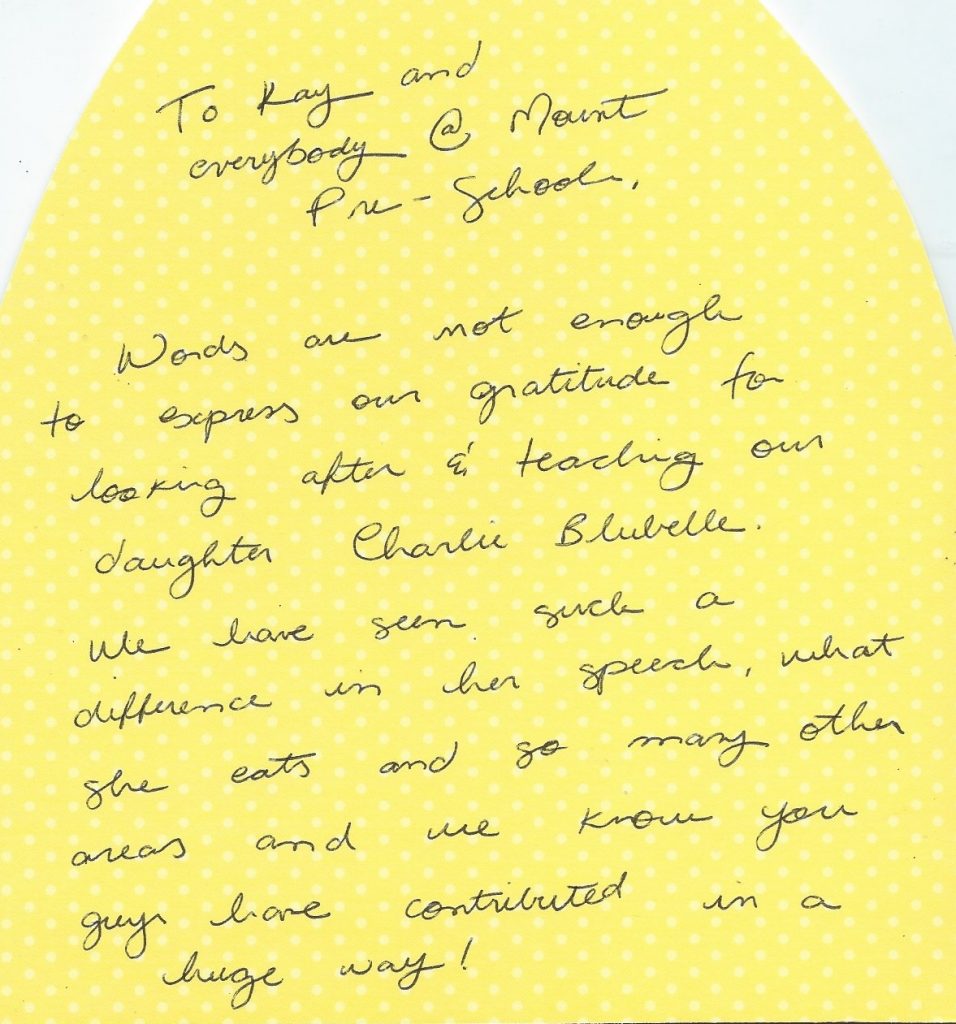 To Kay and
everybody @ Mount
Pre-School,
Words are not enough
to express our gratitude for
looking after & teaching our
daughter Charlie Blubelle.
We have seen such a
difference in her speech, what
she eats and so many other
areas and we know you
guys have contributed in a
huge way!